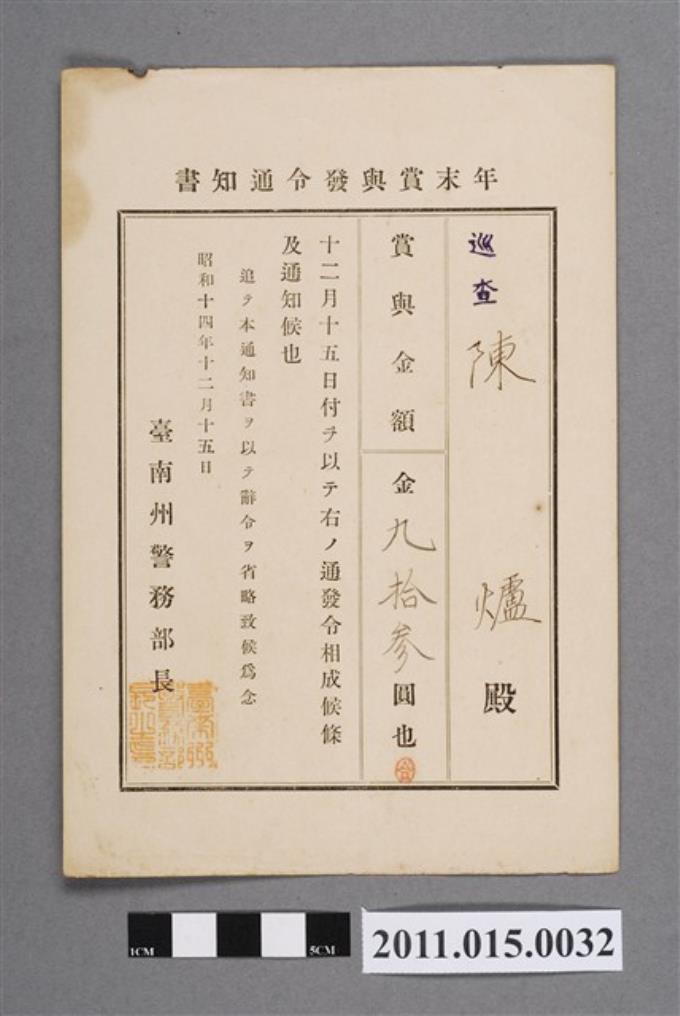 年末賞與發令通知書
巡查 陳 爐 殿
賞與金額 金九拾参圓也
十二月十五日付ヲ以テ右ノ通發令相成候條
及通知候也
追テ本通知書ヲ以テ辭令ヲ省略致候爲念
昭和十四年十二月十五日
臺南州警務部長
臺南州警務部長之章
1CM
5CM
2011.015.0032